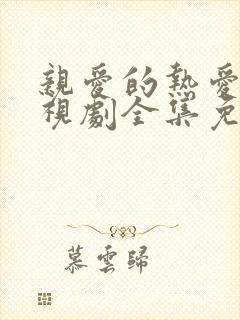 親愛的熱愛
視劇全集免
慕雲歸